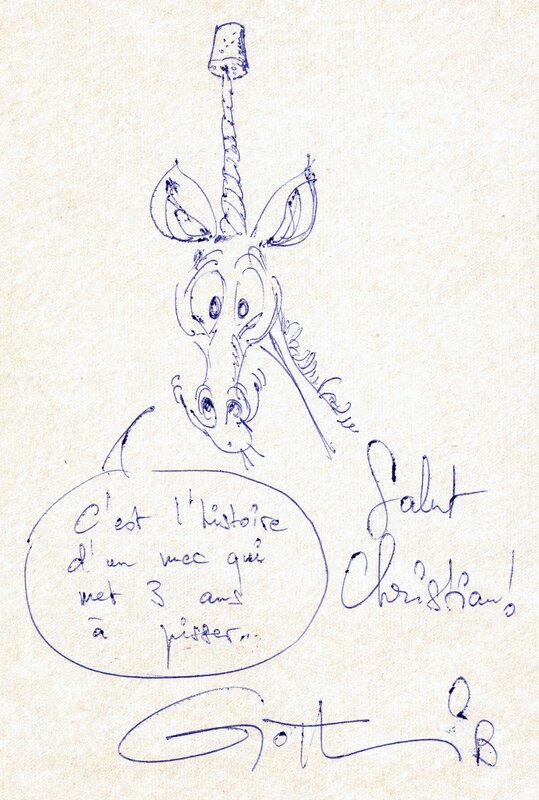 C'est l'histoire
d'un mec qui
met 3 ans
à pisser...
Salut
Christian!
Gotlib